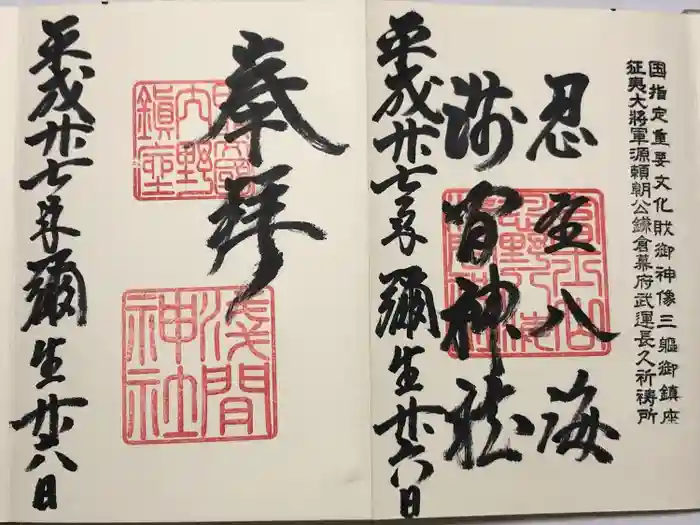 国指定重要文化財御神像三軀御鎮座
征夷大將軍源頼朝公鎌倉幕府武運長久祈祷所
忍
八海
浅間神社
平成廿七年彌生廿八日
奉拝
鎮座
浅間
神社
平成廿七年彌生廿八日